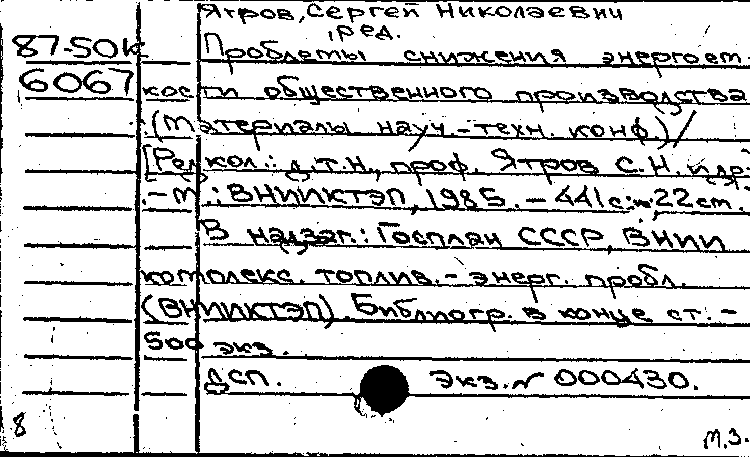 Ятров, Сергей Николаевич
, ред.
87-50К Проблемы снижения энергоем-
6067 кости общественного производства
: (Материалы науч.-техн. конф.) /
[Редкол.: д.т.н., проф. Ятров С.Н. и др.]
.- М.: ВНИИКТЭП, 1985. - 441 с.; 22 см.
В надзаг.: Госплан СССР, ВНИИ
комплекс. топлив.-энерг. пробл.
(ВНИИКТЭП). Библиогр. в конце ст. -
500 экз.
ДСП. Экз. № 000430.
8 М.З.